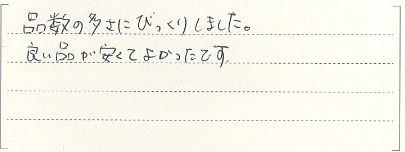 品数の多さにびっくりしました。
良い品が安くてよかったです